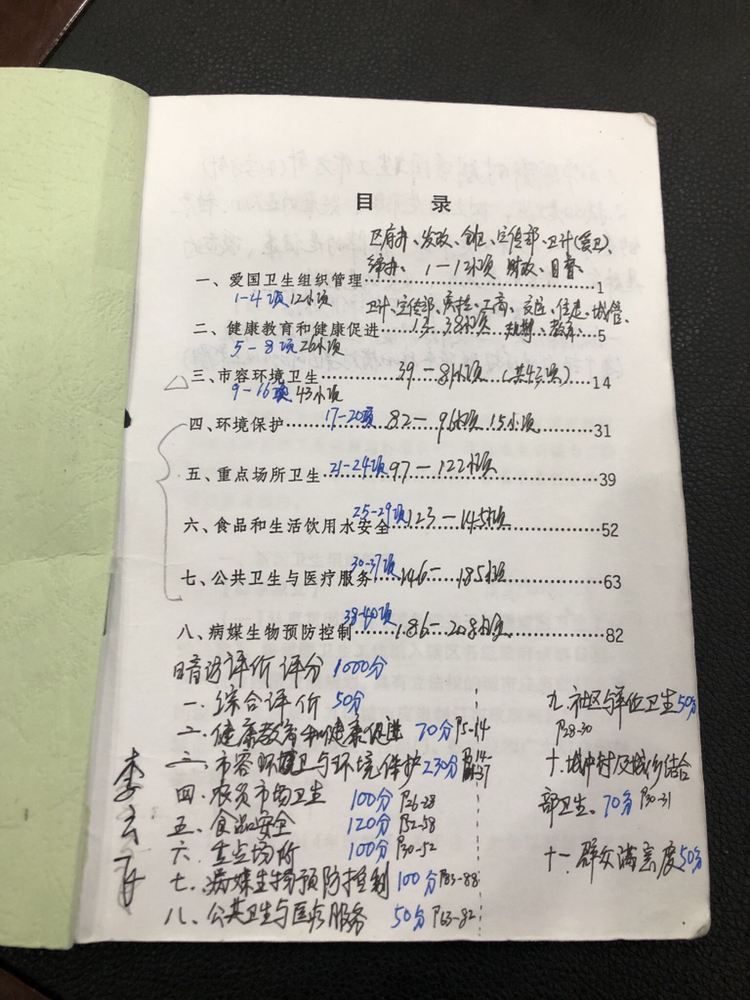 目 录
区府办、发改、创卫、宣传部、卫计(爱卫)、
编办、 1-12小项 财政、目督、
一、爱国卫生组织管理 1
1-4项 12小项
卫计、宣传部、疾控、工商、交运、住建、城管、
二、健康教育和健康促进 13-38小项 规划、教体 5
5-8项 26小项
△三、市容环境卫生 39-81小项 (共43项) 14
9-16项 43小项
四、环境保护 17-20项 82-96小项 15小项 31
五、重点场所卫生 21-24项 97-122小项 39
六、食品和生活饮用水安全 25-29项 123-145小项 52
七、公共卫生与医疗服务 30-37项 146-185小项 63
八、病媒生物预防控制 38-40项 186-208小项 82
暗访评价评分 1000分
一.综合评价 50分
二.健康教育和健康促进 70分 P5-14
三.市容环境卫生与环境保护 230分 P14-37
四.农贸市场卫生 100分 P26-28
五.食品安全 120分 P52-58
六.重点场所 100分 P30-52
七.病媒生物预防控制 100分 P83-88
八.公共卫生与医疗服务 50分 P63-82
九.社区与单位卫生 50分
P28-30
十.城中村及城乡结合
部卫生、70分 P30-31
十一.群众满意度 50分